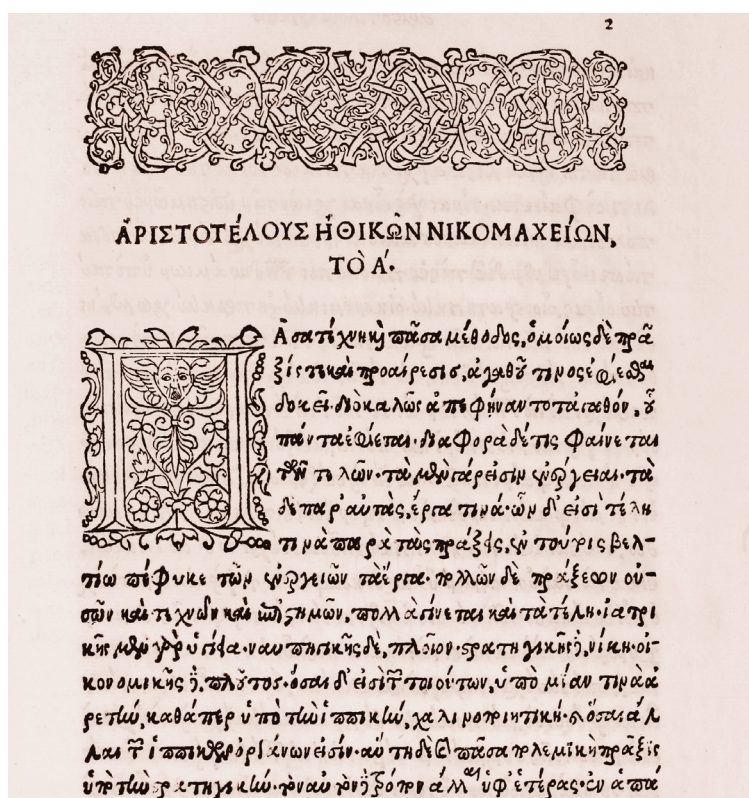 2
ἈΡΙΣΤΟΤΈΛΟΥΣ ἨΘΙΚΩ͂Ν ΝΙΚΟΜΑΧΕΊΩΝ,
ΤῸ Α΄.
Πᾶσα τέχνη καὶ πᾶσα μέθοδος, ὁμοίως δὲ πρᾶ
ξίς τε καὶ προαίρεσις, ἀγαθοῦ τινος ἐφίεσθαι
δοκεῖ· διὸ καλῶς ἀπεφήναντο τἀγαθόν, οὗ
πάντα ἐφίεται· διαφορὰ δέ τις φαίνεται
τῶν τελῶν· τὰ μὲν γάρ εἰσιν ἐνέργειαι· τὰ
δὲ παρ' αὐτὰς, ἔργα τινά· ὧν δ' εἰσὶ τέλη
τινὰ παρὰ τὰς πράξεις, ἐν τούτοις βελ-
τίω πέφυκε τῶν ἐνεργειῶν τὰ ἔργα· πολλῶν δὲ πράξεων οὐ-
σῶν καὶ τεχνῶν καὶ ἐπιστημῶν, πολλὰ γίνεται καὶ τὰ τέλη· ἰατρι
κῆς μὲν γὰρ ὑγίεια· ναυπηγικῆς δὲ, πλοῖον· στρατηγικῆς δὲ, νίκη· οἰ-
κονομικῆς δὲ, πλοῦτος· ὅσαι δ' εἰσὶ τῶν τοιούτων, ὑπὸ μίαν τινὰ ἀ
ρετὴν, καθάπερ ὑπὸ τὴν ἱππικὴν, χαλινοποιητικὴ· καὶ ὅσαι ἄλ
λαι τῶν ἱππικῶν ὀργάνων εἰσίν· αὕτη δὲ καὶ πᾶσα πολεμικὴ πρᾶξις
ὑπὸ τὴν στρατηγικὴν· τὸν αὐτὸν δὴ τρόπον ἄλλαι ὑφ' ἑτέρας· ἐν ἁπά